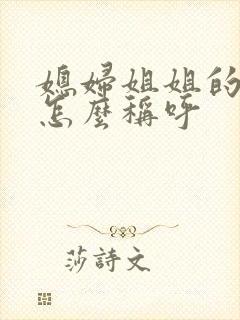 媳婦姐姐的
怎麼稱呼
莎詩文